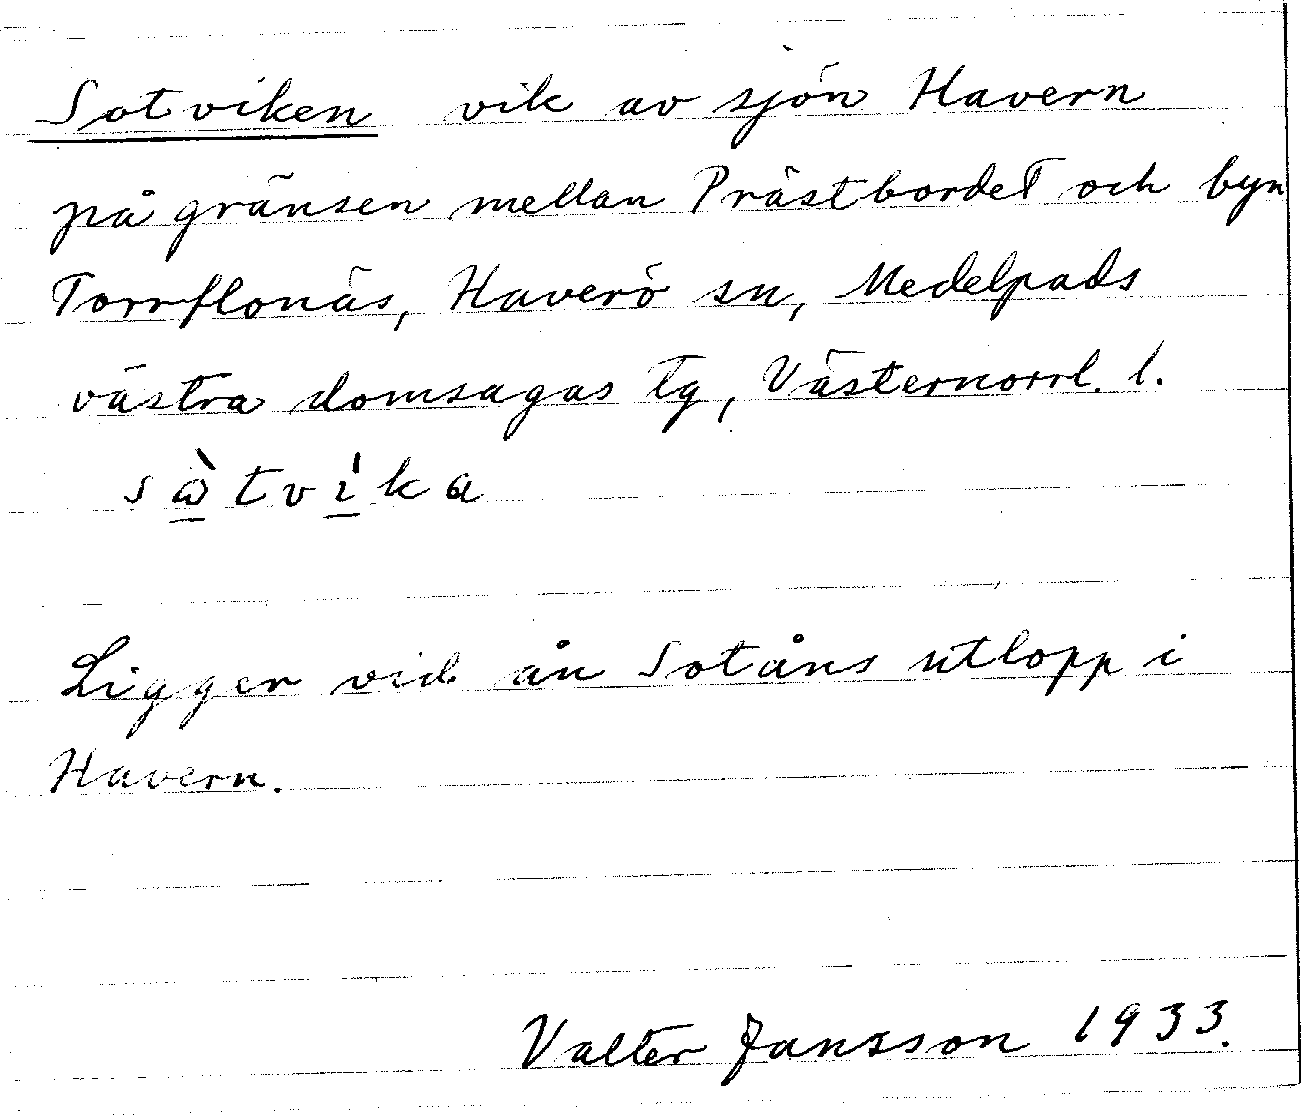 Sotviken vik av sjön Havern
på gränsen mellan Prästbordet och byn
Torrflonäs, Haverö sn, Medelpads
västra domsagas tg, Västernorrl. l.
sὼtvi̍ka
Ligger vid ån Sotåns utlopp i
Havern.
Valter Jansson 1933.